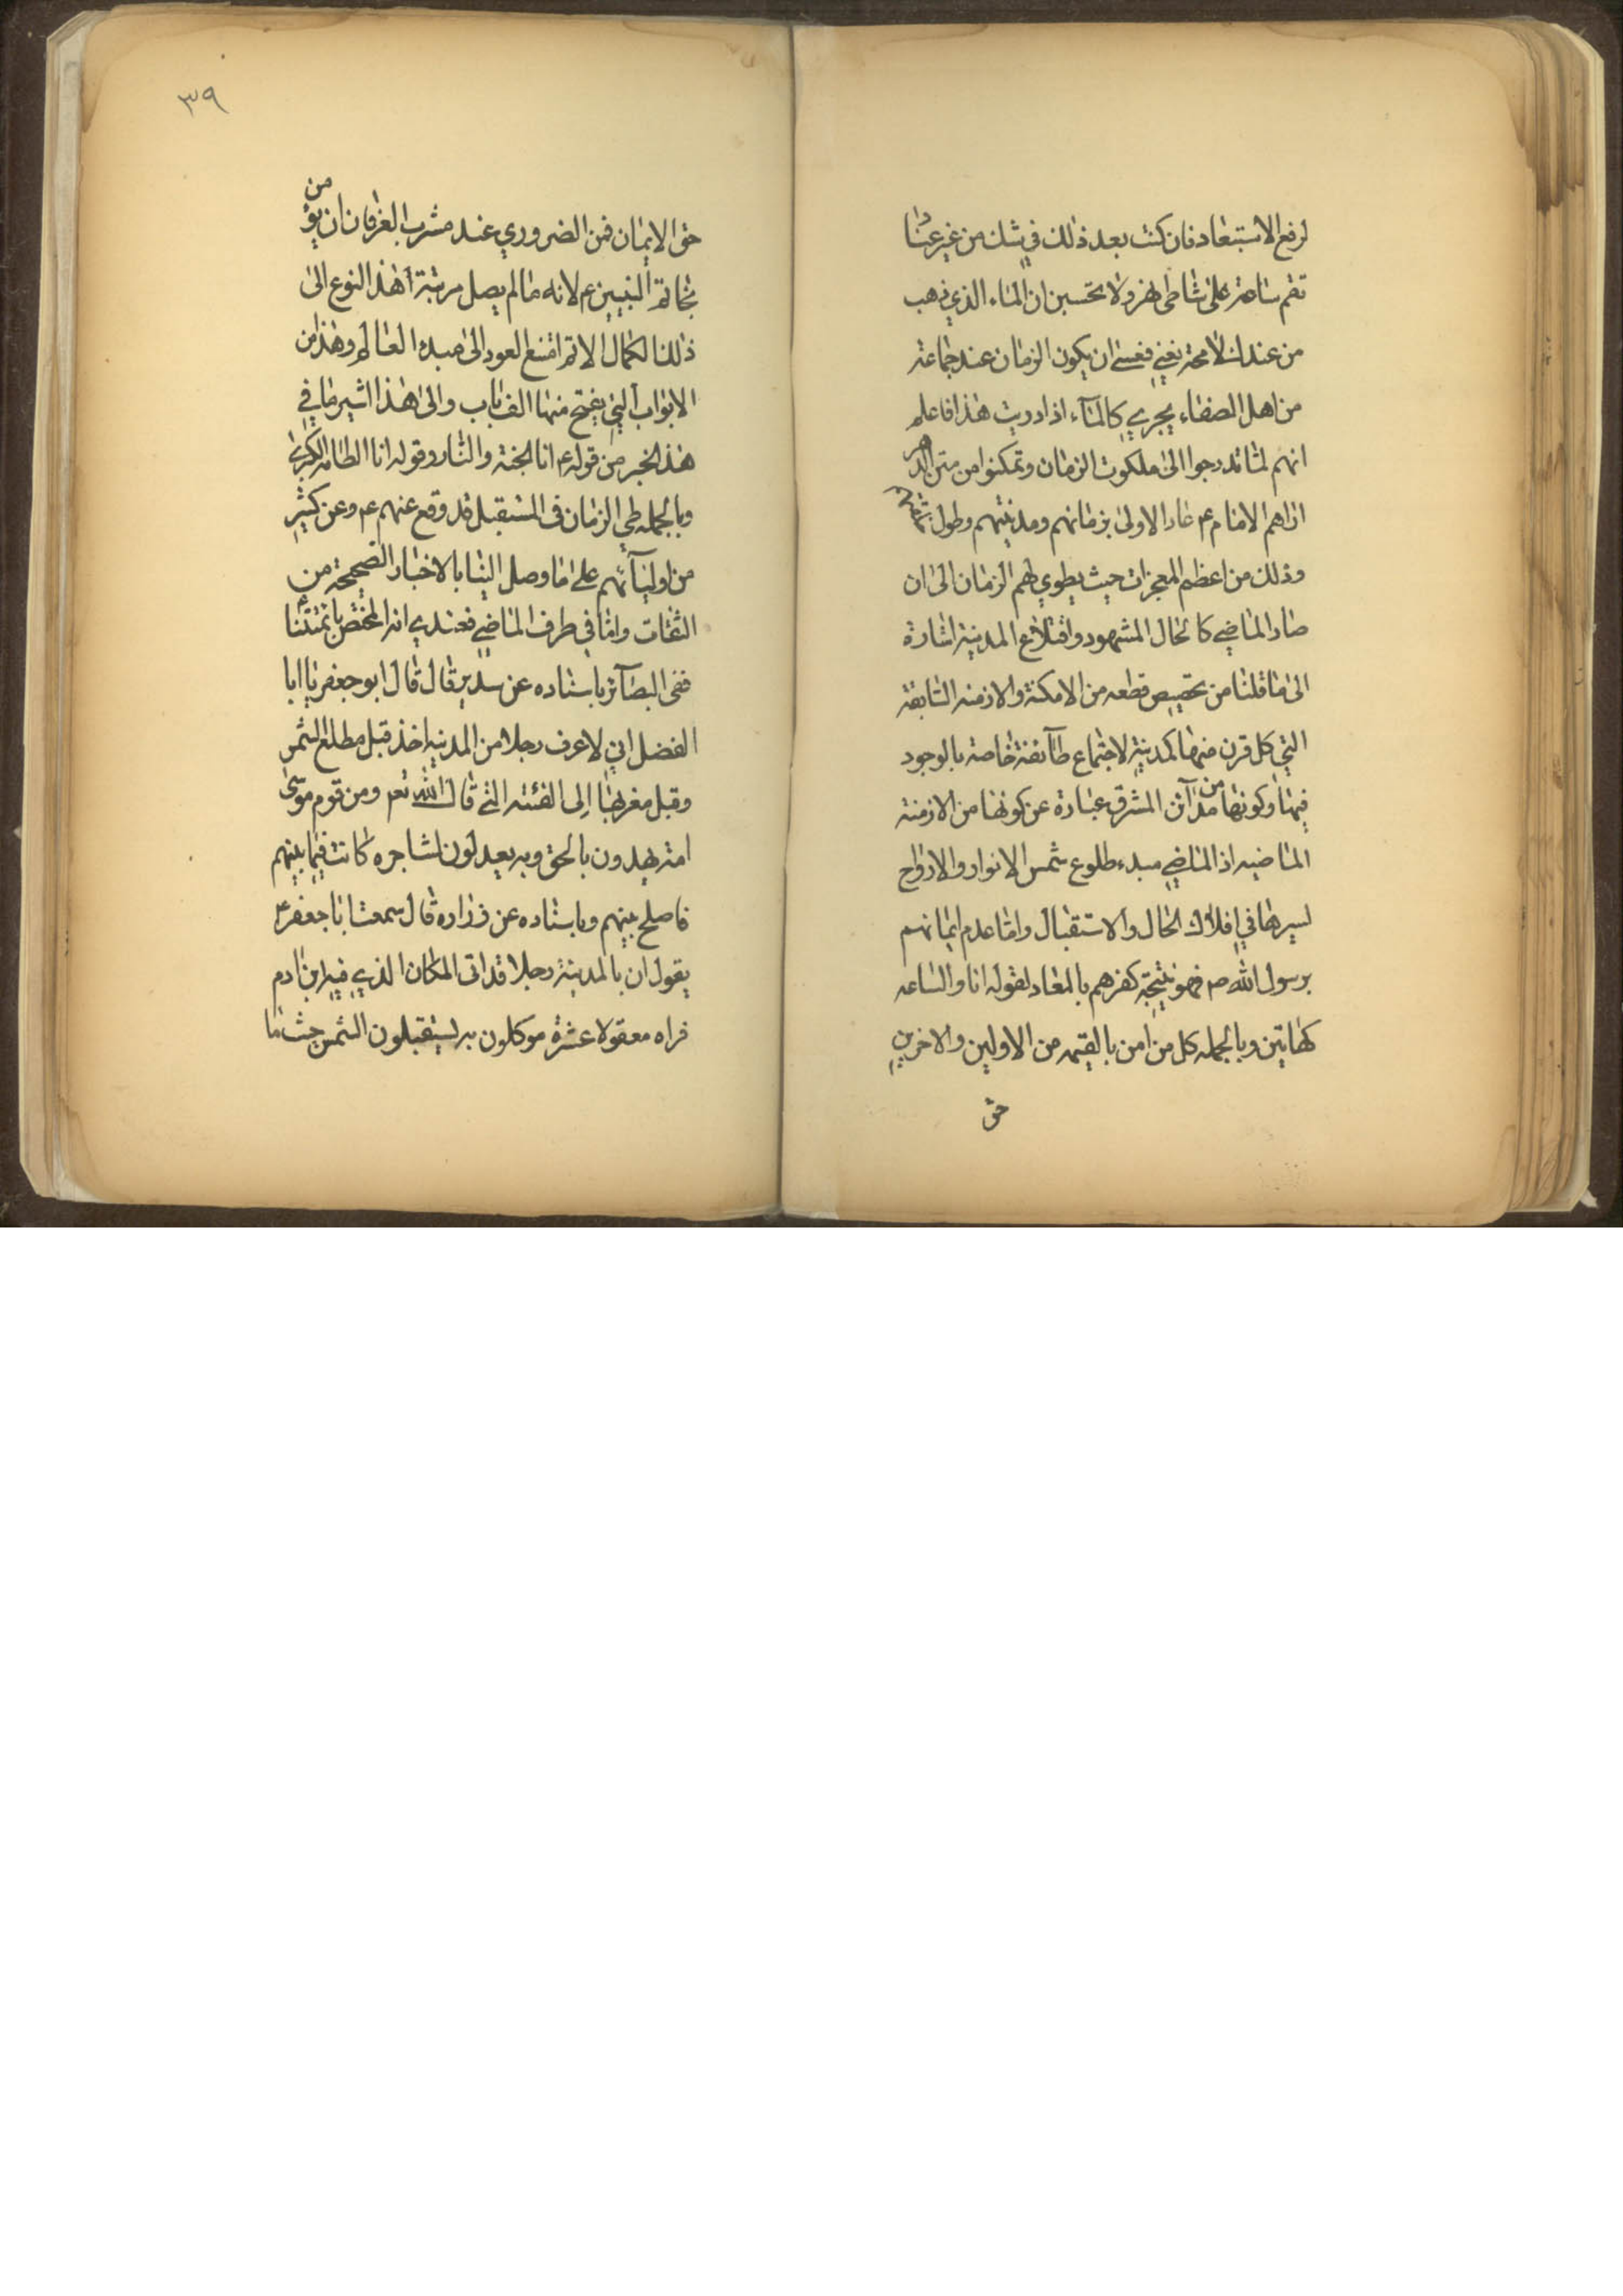 لرفع الاستبعاد فان كنت بعد ذلك في شك من غير عناد
فقم ساعة على شاطى نهر ولا تحسبن ان الماء الذي ذهب
من عندك لامحة يفنى فعسى ان يكون الزمان عند جماعة
من اهل الصفاء يجري كالمآء اذا دريت هذا فاعلم
انهم لما تدرجوا الى ملكوت الزمان وتمكنوا من متن الدهر
اراهم الامام ع عاد الاولى بزمانهم ومدينتهم وطول
وذلك من اعظم المعجزات حيث يطوي لهم الزمان الى ان
صار الماضي كالحال المشهود واقتلاع المدينة اشارة
الى ما قلنا من تخصيص قطعه من الامكنة والازمنه السابقه
التي كل قرن منها كمدينة لاجتماع طآئفة خاصة بالوجود
فيها وكونها من مدآئن المشرق عبارة عن كونها من الازمنة
الماضيه اذ الماضي مبدء طلوع شمس الانوار والارواح
لسيرها في افلاك الحال والاستقبال واما عدم ايمانهم
برسول الله ص فهو نتيجة كفرهم بالمعاد لقوله انا والساعه
كهاتين وبالجمله كل من امن بالقيمه من الاولين والاخرين
حق
٣٩
حق الايمان فمن الضروري عند مشرب العرفان ان يؤمن
بخاتم النبيين ع لانه ما لم يصل مرتبة هذا النوع الى
ذلك الكمال الاتم امتنع العود الى مبدء العالم وهذا من
الابواب التي يفتح منها الف باب والى هذا اشير ما في
هذا الخبر من قوله ع انا الجنة والنار وقوله انا الطامه الكبرى
وبالجمله طي الزمان في المستقبل قد وقع عنهم ع وعن كثير
من اوليآئهم على ما وصل الينا بالاخبار الصحيحة من
الثقات واما في طرف الماضي فعندي انه المختص بائمتنا
ففى البصآئر باسناده عن سدير قال قال ابو جعفر يا ابا
الفضل اني لاعرف رجلا من المدينه اخذ قبل مطلع الشمس
وقبل مغربها الى الفئته التي قال الله تعم ومن قوم موسى
امة يهدون بالحق وبه يعدلون لمشاجره كانت فيما بينهم
فاصلح بينهم وباسناده عن زراره قال سمعت ابا جعفر ع
يقول ان بالمدينة رجلا قد اتى المكان الذي فيه ابن ادم
فراه معقولا عشرة موكلون به يستقبلون الشمس حيث ما